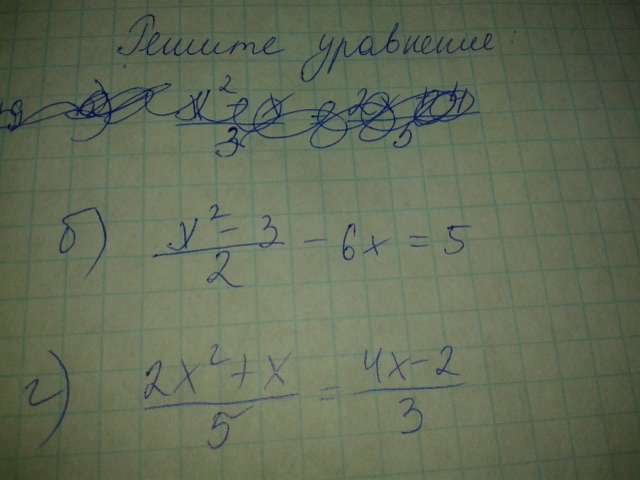 Решите уравнение:
б) (x² - 3)/2 - 6x = 5
г) (2x² + x)/5 = (4x - 2)/3